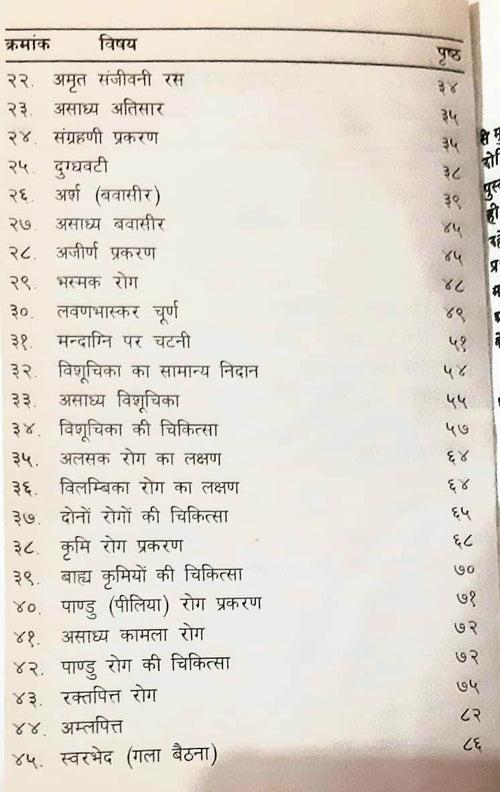 क्रमांक विषय पृष्ठ
२२. अमृत संजीवनी रस ३४
२३. असाध्य अतिसार ३५
२४. संग्रहणी प्रकरण ३५
२५. दुग्धवटी ३८
२६. अर्श (बवासीर) ३९
२७. असाध्य बवासीर ४५
२८. अजीर्ण प्रकरण ४५
२९. भस्मक रोग ४८
३०. लवणभास्कर चूर्ण ४९
३१. मन्दाग्नि पर चटनी ५१
३२. विशूचिका का सामान्य निदान ५४
३३. असाध्य विशूचिका ५५
३४. विशूचिका की चिकित्सा ५७
३५. अलसक रोग का लक्षण ६४
३६. विलम्बिका रोग का लक्षण ६४
३७. दोनों रोगों की चिकित्सा ६५
३८. कृमि रोग प्रकरण ६८
३९. बाह्य कृमियों की चिकित्सा ७०
४०. पाण्डु (पीलिया) रोग प्रकरण ७१
४१. असाध्य कामला रोग ७२
४२. पाण्डु रोग की चिकित्सा ७२
४३. रक्तपित्त रोग ७५
४४. अम्लपित्त ८२
४५. स्वरभेद (गला बैठना) ८६